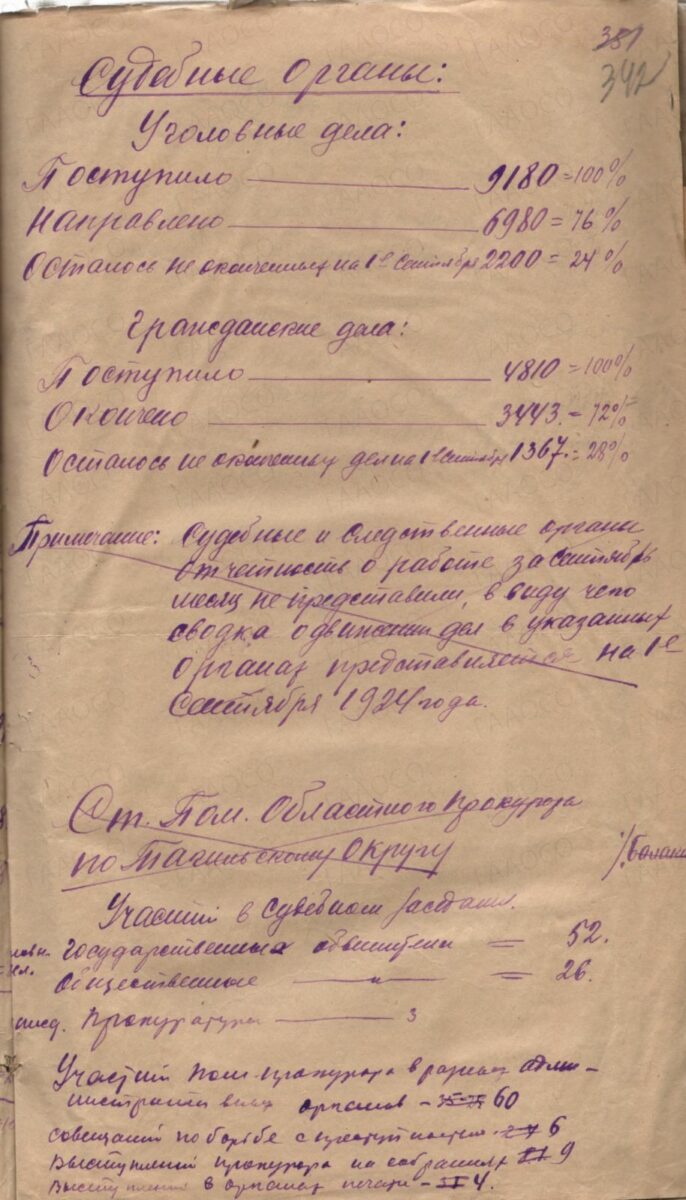 381
342
Судебные органы:
Уголовные дела:
Поступило 9180 = 100%
Направлено 6980 = 76%
Осталось не оконченных на 1е Сентября 2200 = 24%
Гражданские дела:
Поступило 4810 = 100%
Окончено 3443. = 72%
Осталось не оконченных дел на 1е Сентября 1367. = 28%
Примечание: Судебные и следственные органы
отчетность о работе за Сентябрь
месяц не представили, в виду чего
сводка о движении дел в указанных
органах представляется на 1е
Сентября 1924 года.
Ст. Пом. Областного Прокурора
по Тагильскому Округу
%
Участий в судебном заседании.
Государственных обвинителей = 52.
Общественные — " — = 26.
Прокуратуры — 3
Участий пом. прокурора в разных адми-
нистративных органов - 60
Совещаний по борьбе с преступностью - 6
Выступлений прокурора на собраниях 9
Выступления в органах печати - 4.